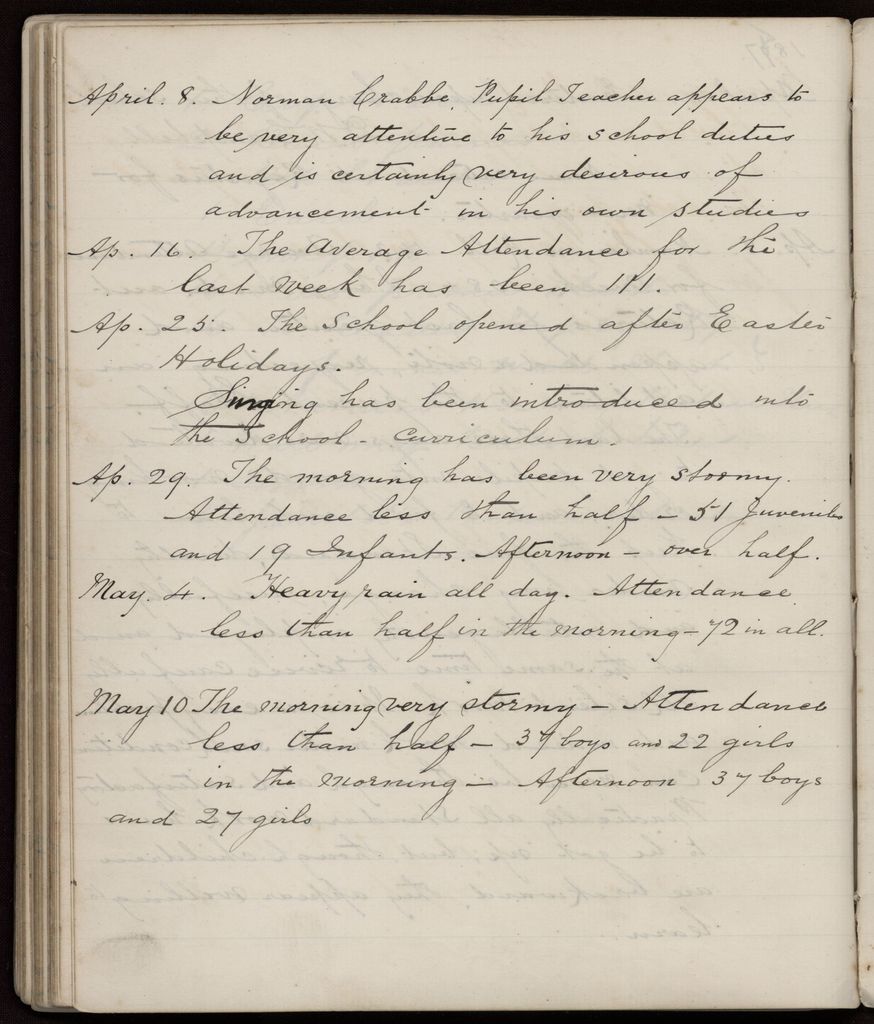 April. 8. Norman Crabbe, Pupil Teacher appears to
be very attentive to his school duties
and is certainly very desirous of
advancement in his own studies
Ap. 16. The Average Attendance for the
last week has been 111.
Ap. 25. The School opened after Easter
Holidays.
Singing has been introduced into
the School - curriculum.
Ap. 29. The morning has been very stormy.
Attendance less than half - 51 Juveniles
and 19 Infants. Afternoon - over half.
May. 4. Heavy rain all day. Attendance
less than half in the morning - 72 in all.
May 10 The morning very stormy - Attendance
less than half - 37 boys and 22 girls
in the morning - Afternoon 37 boys
and 27 girls